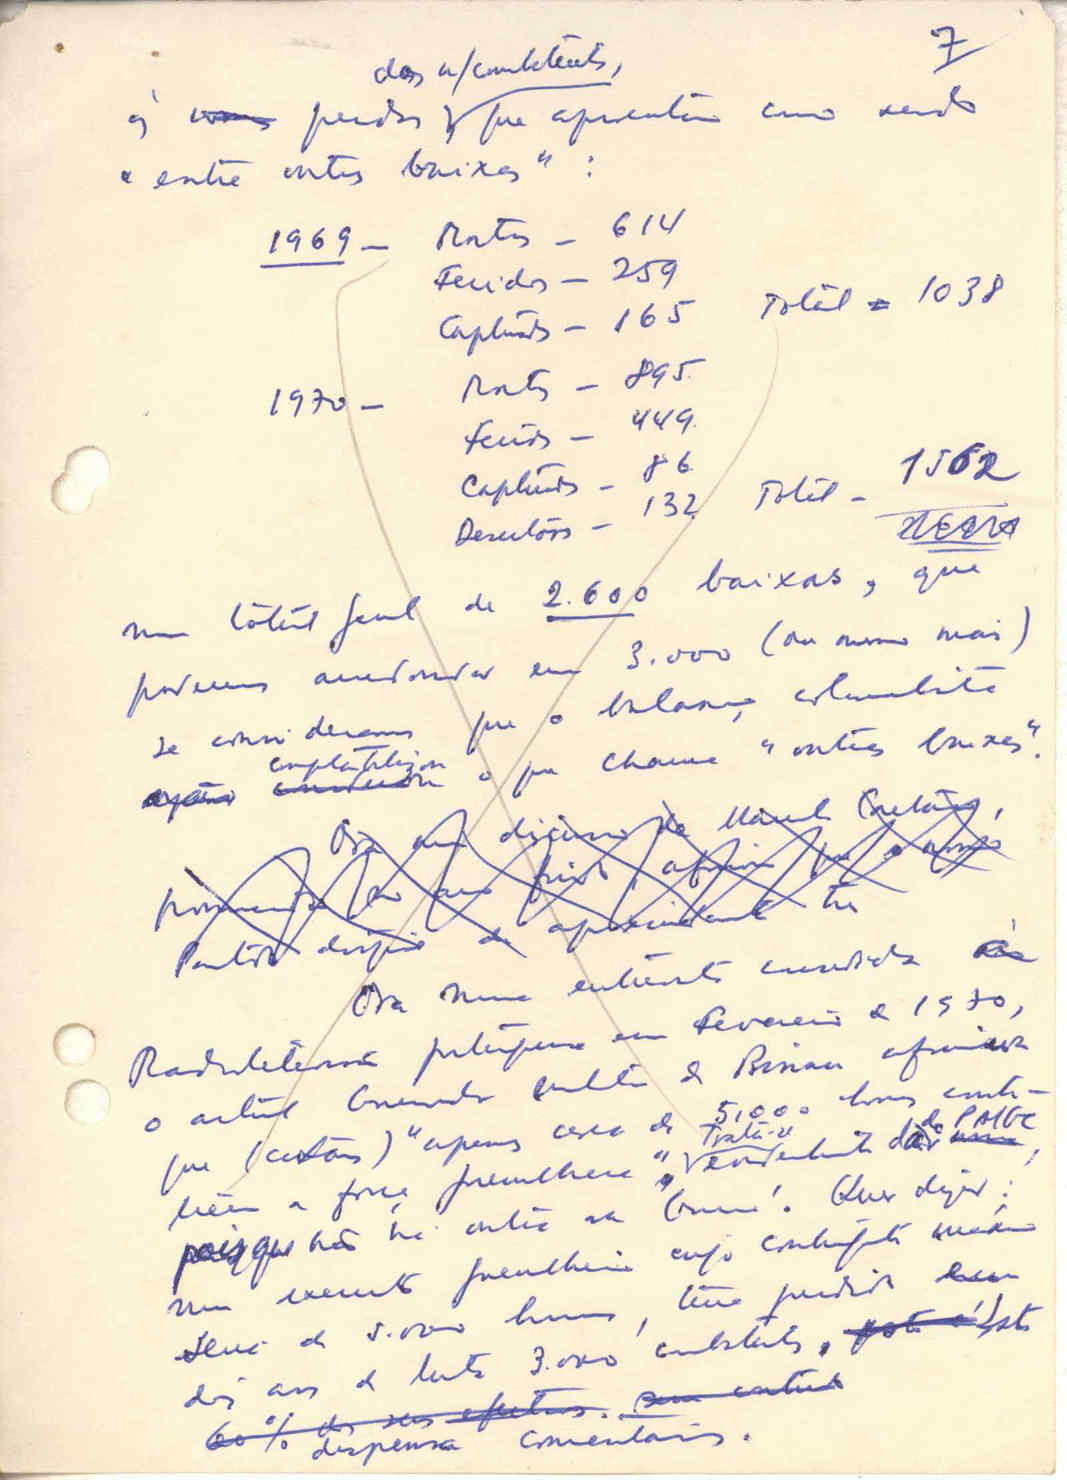 7
dos n/combatentes,
às perdas que apresentam como sendo
"entre outras baixas":
1969 — Mortos — 614
Feridos — 259
Capturados — 165 Total = 1038
1970 — Mortos — 895
Feridos — 449
Capturados — 86
Desertores — 132 Total — 1562
num total geral de 2.600 baixas, que
podemos arredondar em 3.000 (ou mesmo mais)
se considerarmos que o balanço colonialista
o que chama "outras baixas".
Ora um discurso de Marcelo Caetano,
Partido
Ora numa entrevista concedida à
Radiotelevisão portuguesa em Fevereiro de 1970,
o actual Comandante militar de Bissau
que (citamos) "apenas cerca de 5.000 homens consti-
tuem a força guerrilheira", Trata-se evidentemente da do PAIGC,
pois que não há outra na Guiné. Quer dizer:
num exército guerrilheiro cujo contingente máximo
seria de 5.000 homens, teria perdido em
dois anos de luta 3.000 combatentes, Isto
60% dos seus efectivos. sem contudo
dispensa comentários.